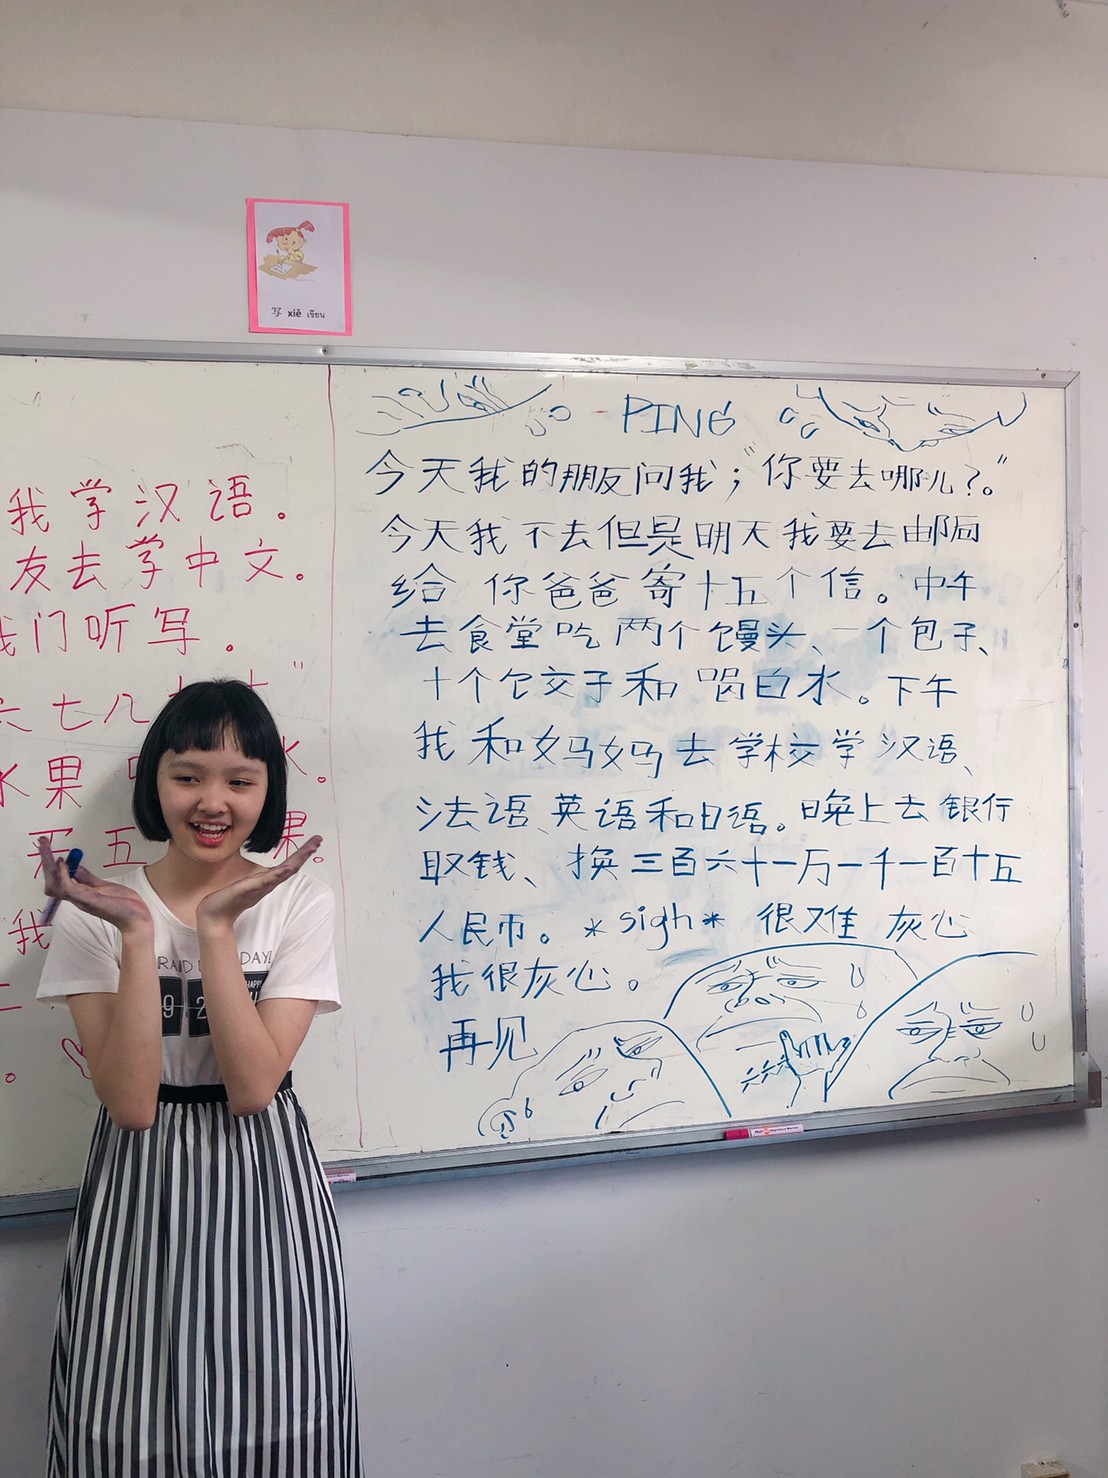 写 xiě เขียน
我学汉语。
友去学中文。
我门听写。
六七八
水果
水。
买五
果。
我
PING
今天我的朋友问我；“你要去哪儿？。”
今天我不去但是明天我要去邮局
给你爸爸寄十五个信。中午
去食堂吃两个馒头、一个包子、
十个饣交子和喝白水。下午
我和妈妈去学校学汉语、
法语、英语和日语。晚上去银行
取钱、换三百六十一万一千一百十五
人民币。*sigh* 很难 灰心
我很灰心。
再见